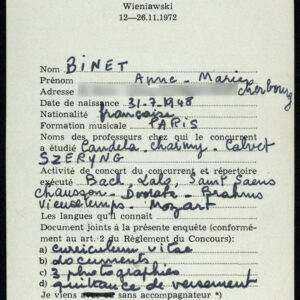 Wieniawski
12—26.11.1972
Nom BINET
Prénom Anne-Marie
Adresse Cherbourg
Date de naissance 31.7.1948
Nationalité française
Formation musicale PARIS
Noms des professeurs chez qui le concurrent
a étudié Candela - Charmy - Calvet
SZERYNG
Activité de concert du concurrent et répertoire
exécuté Bach, Lalo, Saint Saens
Chausson - Dvorak - Brahms
Vieuxtemps - Mozart
Les langues qu'il connait
Document joints à la présente enquête (conformé-
ment au art. 2 du Règlement du Concours):
a) curriculum vitae
b) documents
c) 3 photographies
d) quittance de versement
Je viens avec ou sans accompagnateur *)